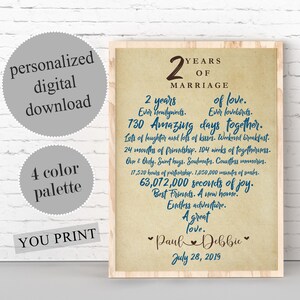 personalized
digital
download
4 color
palette
YOU PRINT
2 YEARS
OF
MARRIAGE
2 years of love.
Ever lovebirds.
730 Amazing days together.
Lots of laughter and lots of kisses. Weekend breakfast.
24 months of friendship. 104 weeks of togetherness.
One & Only. Saint hugs. Soulmates. Countless memories.
17,520 hours of partnership. 1,050,000 minutes of smiles.
63,072,000 seconds of joy.
Best Friends. A new home.
Endless adventure.
A great
love.
Paul Debbie
July 28, 2019